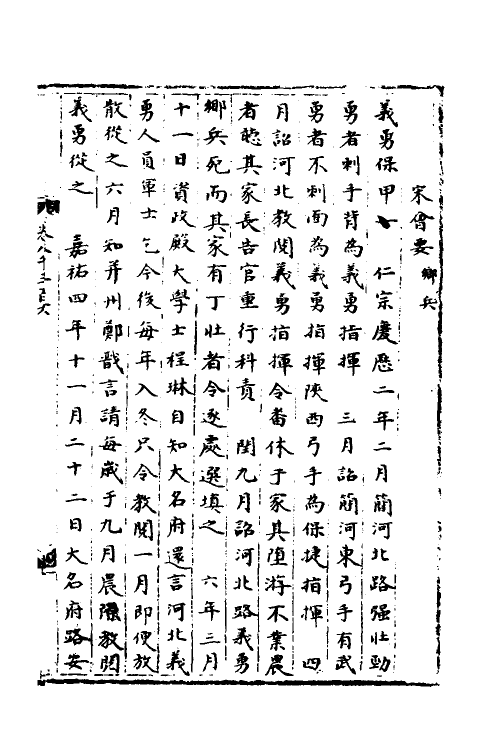 宋會要 鄉兵
義勇保甲 仁宗慶歷二年二月簡河北路强壯勁
勇者刺手背為義勇指揮 三月詔簡河東弓手有武
勇者不刺面為義勇指揮陝西弓手為保捷指揮 四
月詔河北教閱義勇指揮令畨休于家其墮游不業農
者聽其家長告官重行科責 閏九月詔河北路義勇
鄉兵死而其家有丁壯者令逐處選填之 六年三月
十一日資政殿大學士程琳自知大名府還言河北義
勇人員軍士乞今後每年入冬只令教閱一月即便放
散從之六月知并州鄭戩言請每歲于九月農隙教閱
義勇從之 嘉祐四年十一月二十二日大名府路安
卷八千三百六